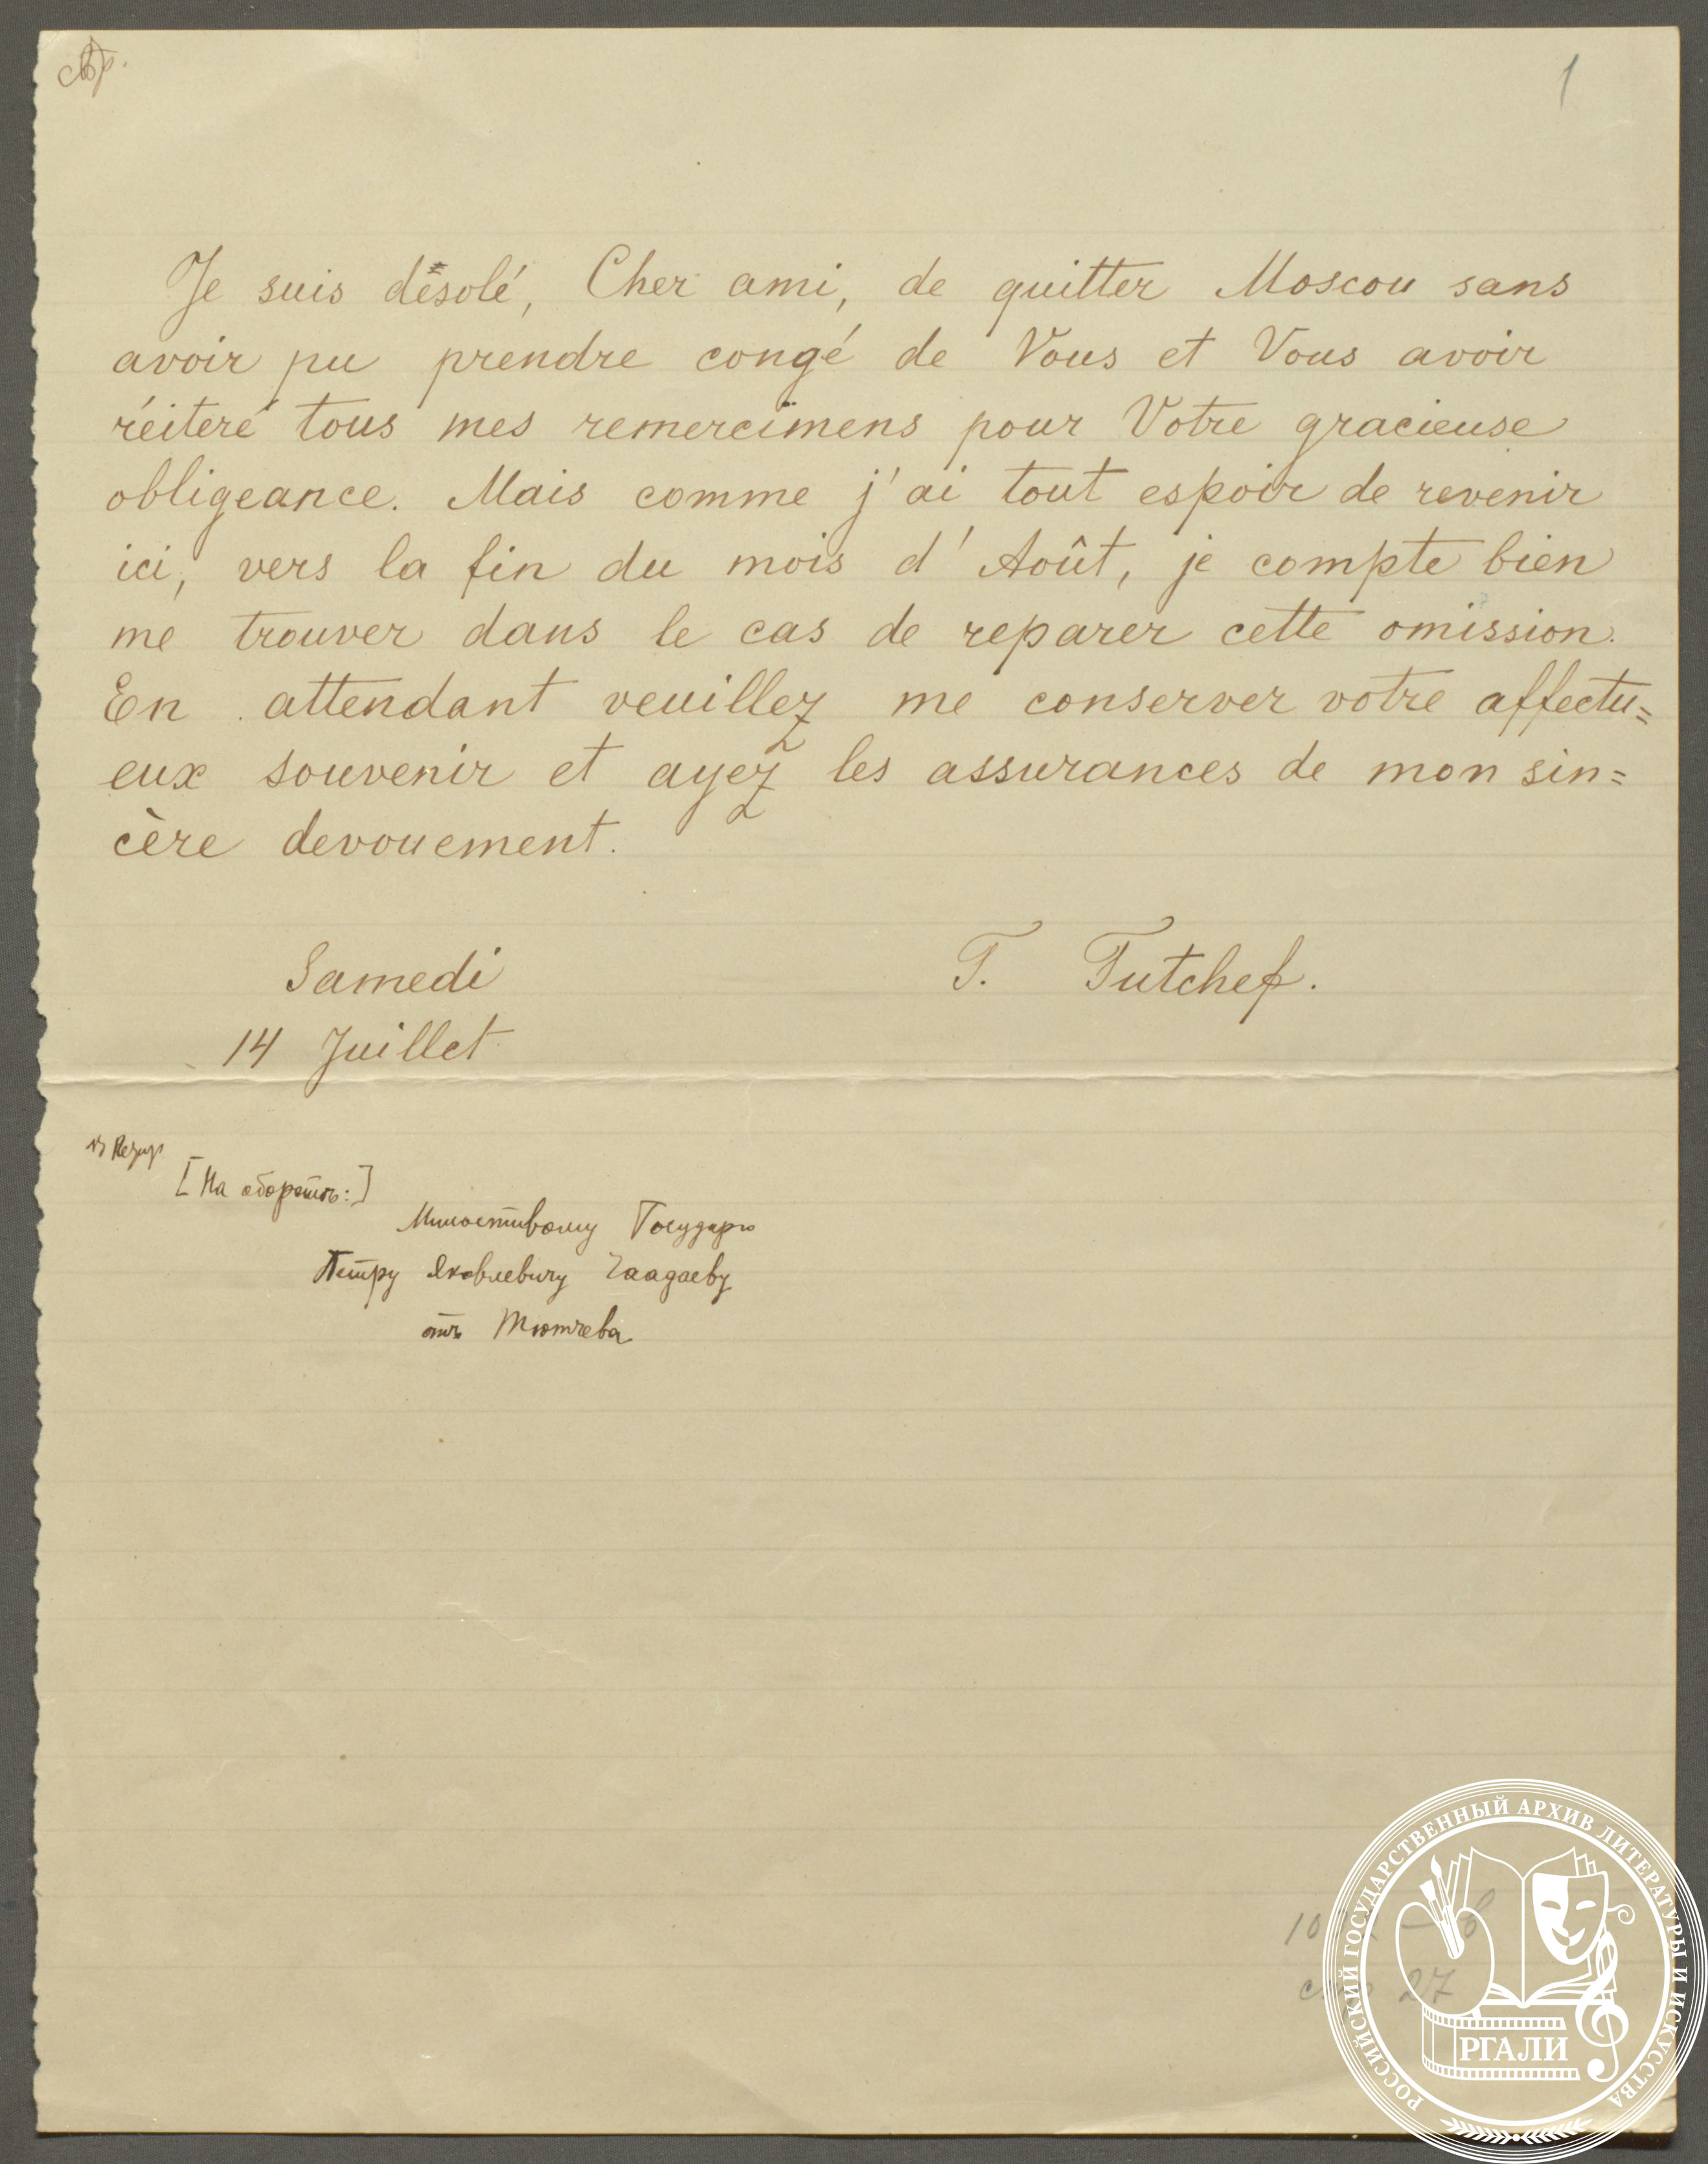 1
Je suis désolé, Cher ami, de quitter Moscou sans
avoir pu prendre congé de Vous et Vous avoir
réiteré tous mes remercimens pour Votre gracieuse
obligeance. Mais comme j'ai tout espoir de revenir
ici, vers la fin du mois d'Août, je compte bien
me trouver dans le cas de reparer cette omission.
En attendant veuillez me conserver votre affectu=
eux souvenir et ayez les assurances de mon sin=
cère devouement.
Samedi T. Tutchef.
14 Juillet
[На оборотѣ:]
Милостивому Государю
Петру Яковлевичу Чаадаеву
отъ Тютчева
27
РОССИЙСКИЙ ГОСУДАРСТВЕННЫЙ АРХИВ ЛИТЕРАТУРЫ И ИСКУССТВА
РГАЛИ